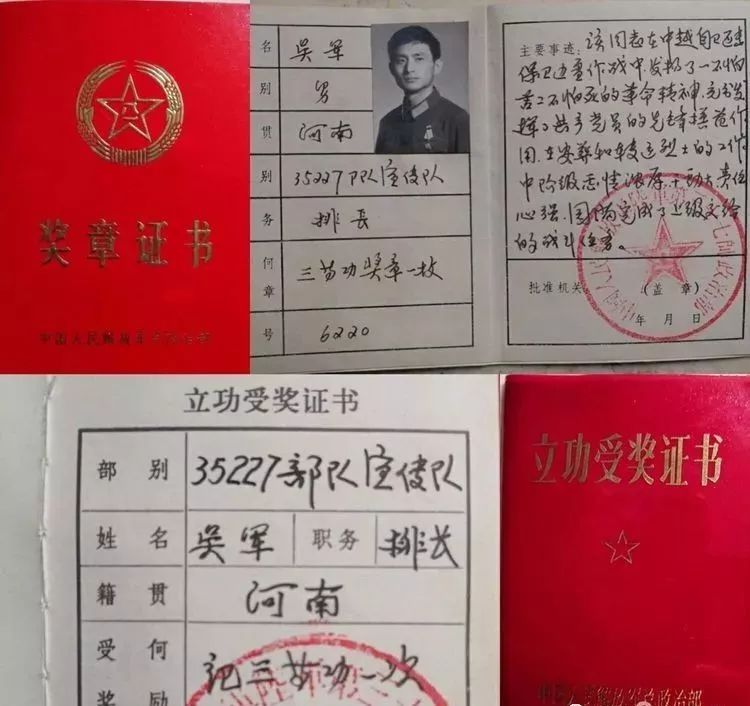 奖章证书
名 吴军
别 男
贯 河南
别 35227部队宣传队
务 排长
何 三等功奖章一枚
章
号 6220
主要事迹：该同志在中越自卫还击
保卫边疆作战中,发扬了一不怕
苦二不怕死的革命精神,充分发
挥了共产党员的先锋模范作
用,在安葬和转运烈士的工作
中阶级感情浓厚
心强,圆满完成了上级交给
的战斗任务。
批准机关 (盖章)
年 月 日
立功受奖证书
部别 35227部队宣传队
姓名 吴军 职务 排长
籍贯 河南
受何 记三等功一次
奖励
立功受奖证书
中国人民解放军总政治部